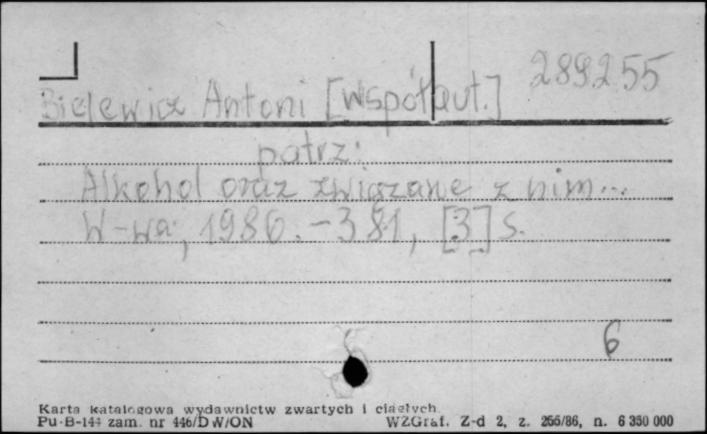 289255
Bielewicz Antoni [współaut.]
patrz:
Alkohol oraz związane z nim...
W-wa, 1986. - 381, [3] s.
6
Karta katalogowa wydawnictw zwartych i ciągłych
Pu-B-144 zam. nr 446/DW/ON WZGraf. Z-d 2, z. 266/86, n. 6 350 000